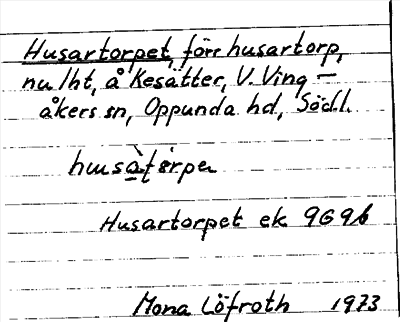 Husartorpet, förr husartorp,
nu lht, å Kesätter, V. Ving-
åkers sn, Oppunda hd, Södl.
Husartorpet ek 9G9b
Mona Löfroth 1973